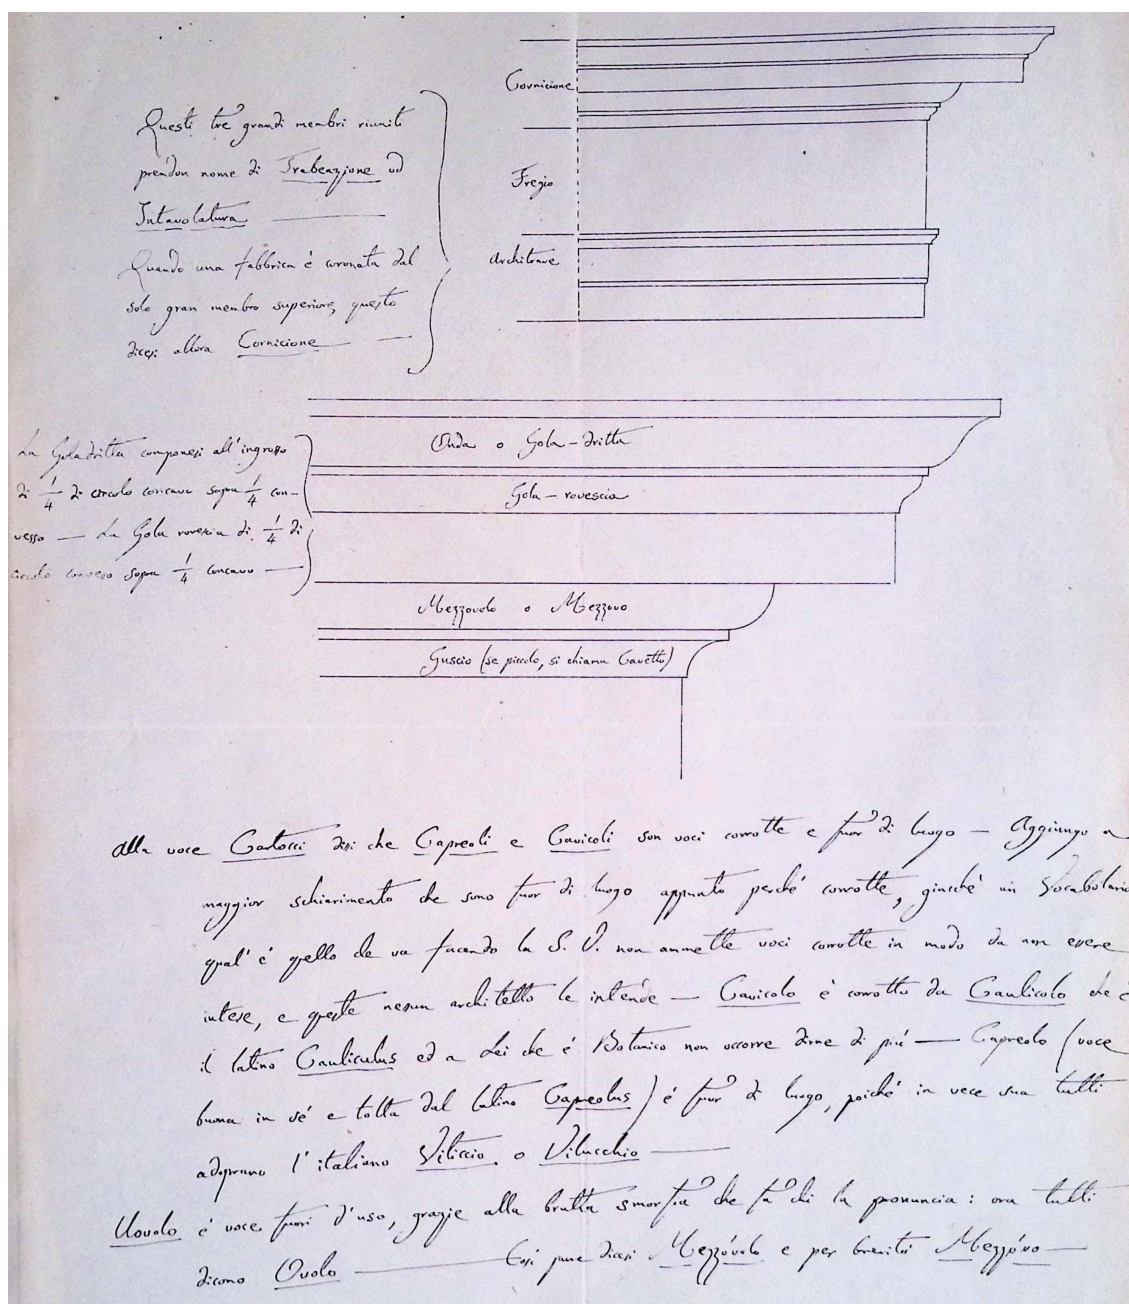 Cornicione
Fregio
Architrave
Questi tre grandi membri riuniti
prendon nome di Trabeazione od
Intavolatura ———
Quando una fabbrica è coronata dal
solo gran membro superiore, questo
dicesi allora Cornicione —— —
La Goladritta componesi all'ingrosso
di 1/4 di circolo concavo sopra 1/4 con-
vesso — La Gola rovescia di 1/4 di
circolo convesso sopra 1/4 concavo ——
Onda o Gola-dritta
Gola-rovescia
Mezzovolo o Mezzovo
Guscio (se piccolo, si chiama Cavetto)
Alla voce Cartocci dissi che Capreoli e Cavicoli son voci corrotte e fuor di luogo — Aggiungo a
maggior schiarimento che sono fuor di luogo appunto perché corrotte, giacché un Vocabolario
qual'è quello che va facendo la S. V. non ammette voci corrotte in modo da non essere
intese, e queste nessun architetto le intende — Cavicolo è corrotto da Caulicolo che è
il latino Cauliculus ed a Lei che è Botanico non occorre dirne di più —— Capreolo (voce
buona in sé e tolta dal latino Capreolus) è fuor di luogo, poiché in vece sua tutti
adoprano l'italiano Viticcio o Vilucchio ———
Uovolo è voce fuori d'uso, grazie alla brutta smorfia che fa chi la pronuncia: ora tutti
dicono Ovolo ————— Così pure dicesi Mezzóvolo e per brevità Mezzóvo —